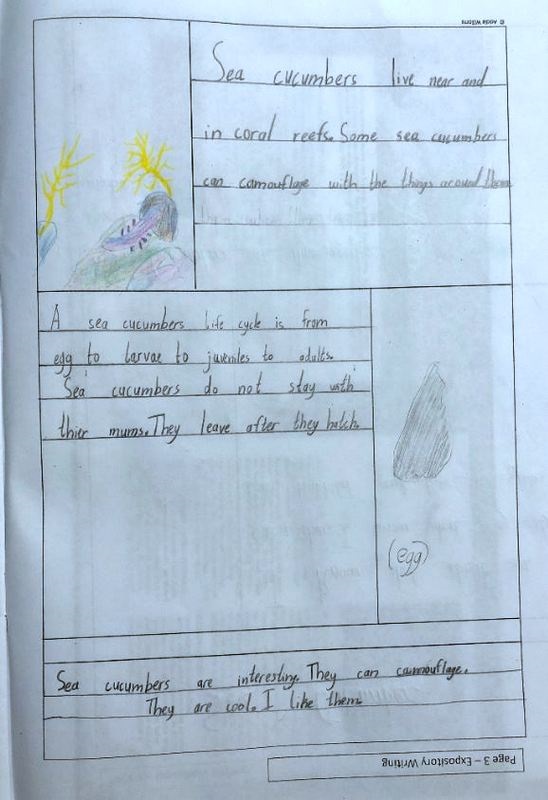 © Aoda Wilsons
Sea cucumbers live near and
in coral reefs. Some sea cucumbers
can camouflage with the things around them
A sea cucumbers life cycle is from
egg to larvae to juveniles to adults.
Sea cucumbers do not stay with
thier mums. They leave after they hatch.
(egg)
Sea cucumbers are interesting. They can camouflage.
They are cool. I like them
Page 3 – Expository Writing